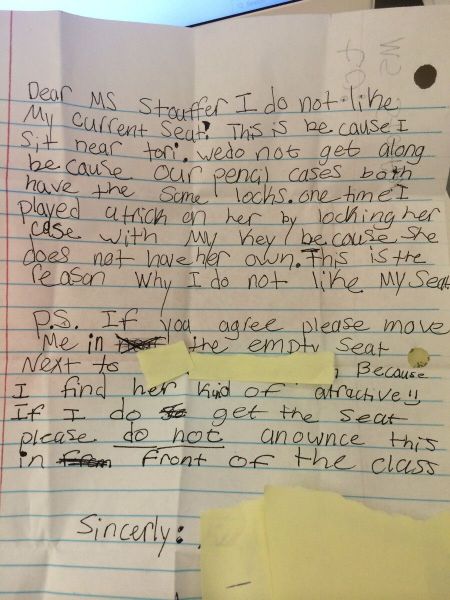 Dear MS Stouffer I do not like
My current Seat. This is because I
Sit near tori. we do not get along
because our pencil cases both
have the Same locks. one time I
played a trick on her by locking her
case with My Key because She
does not have her own. This is the
reason why I do not like My Seat
P.S. If you agree please move
Me in the empty Seat
Next to Because
I find her kind of attractive!!
If I do get the Seat
please do not anownce this
in front of the class
Sincerly: